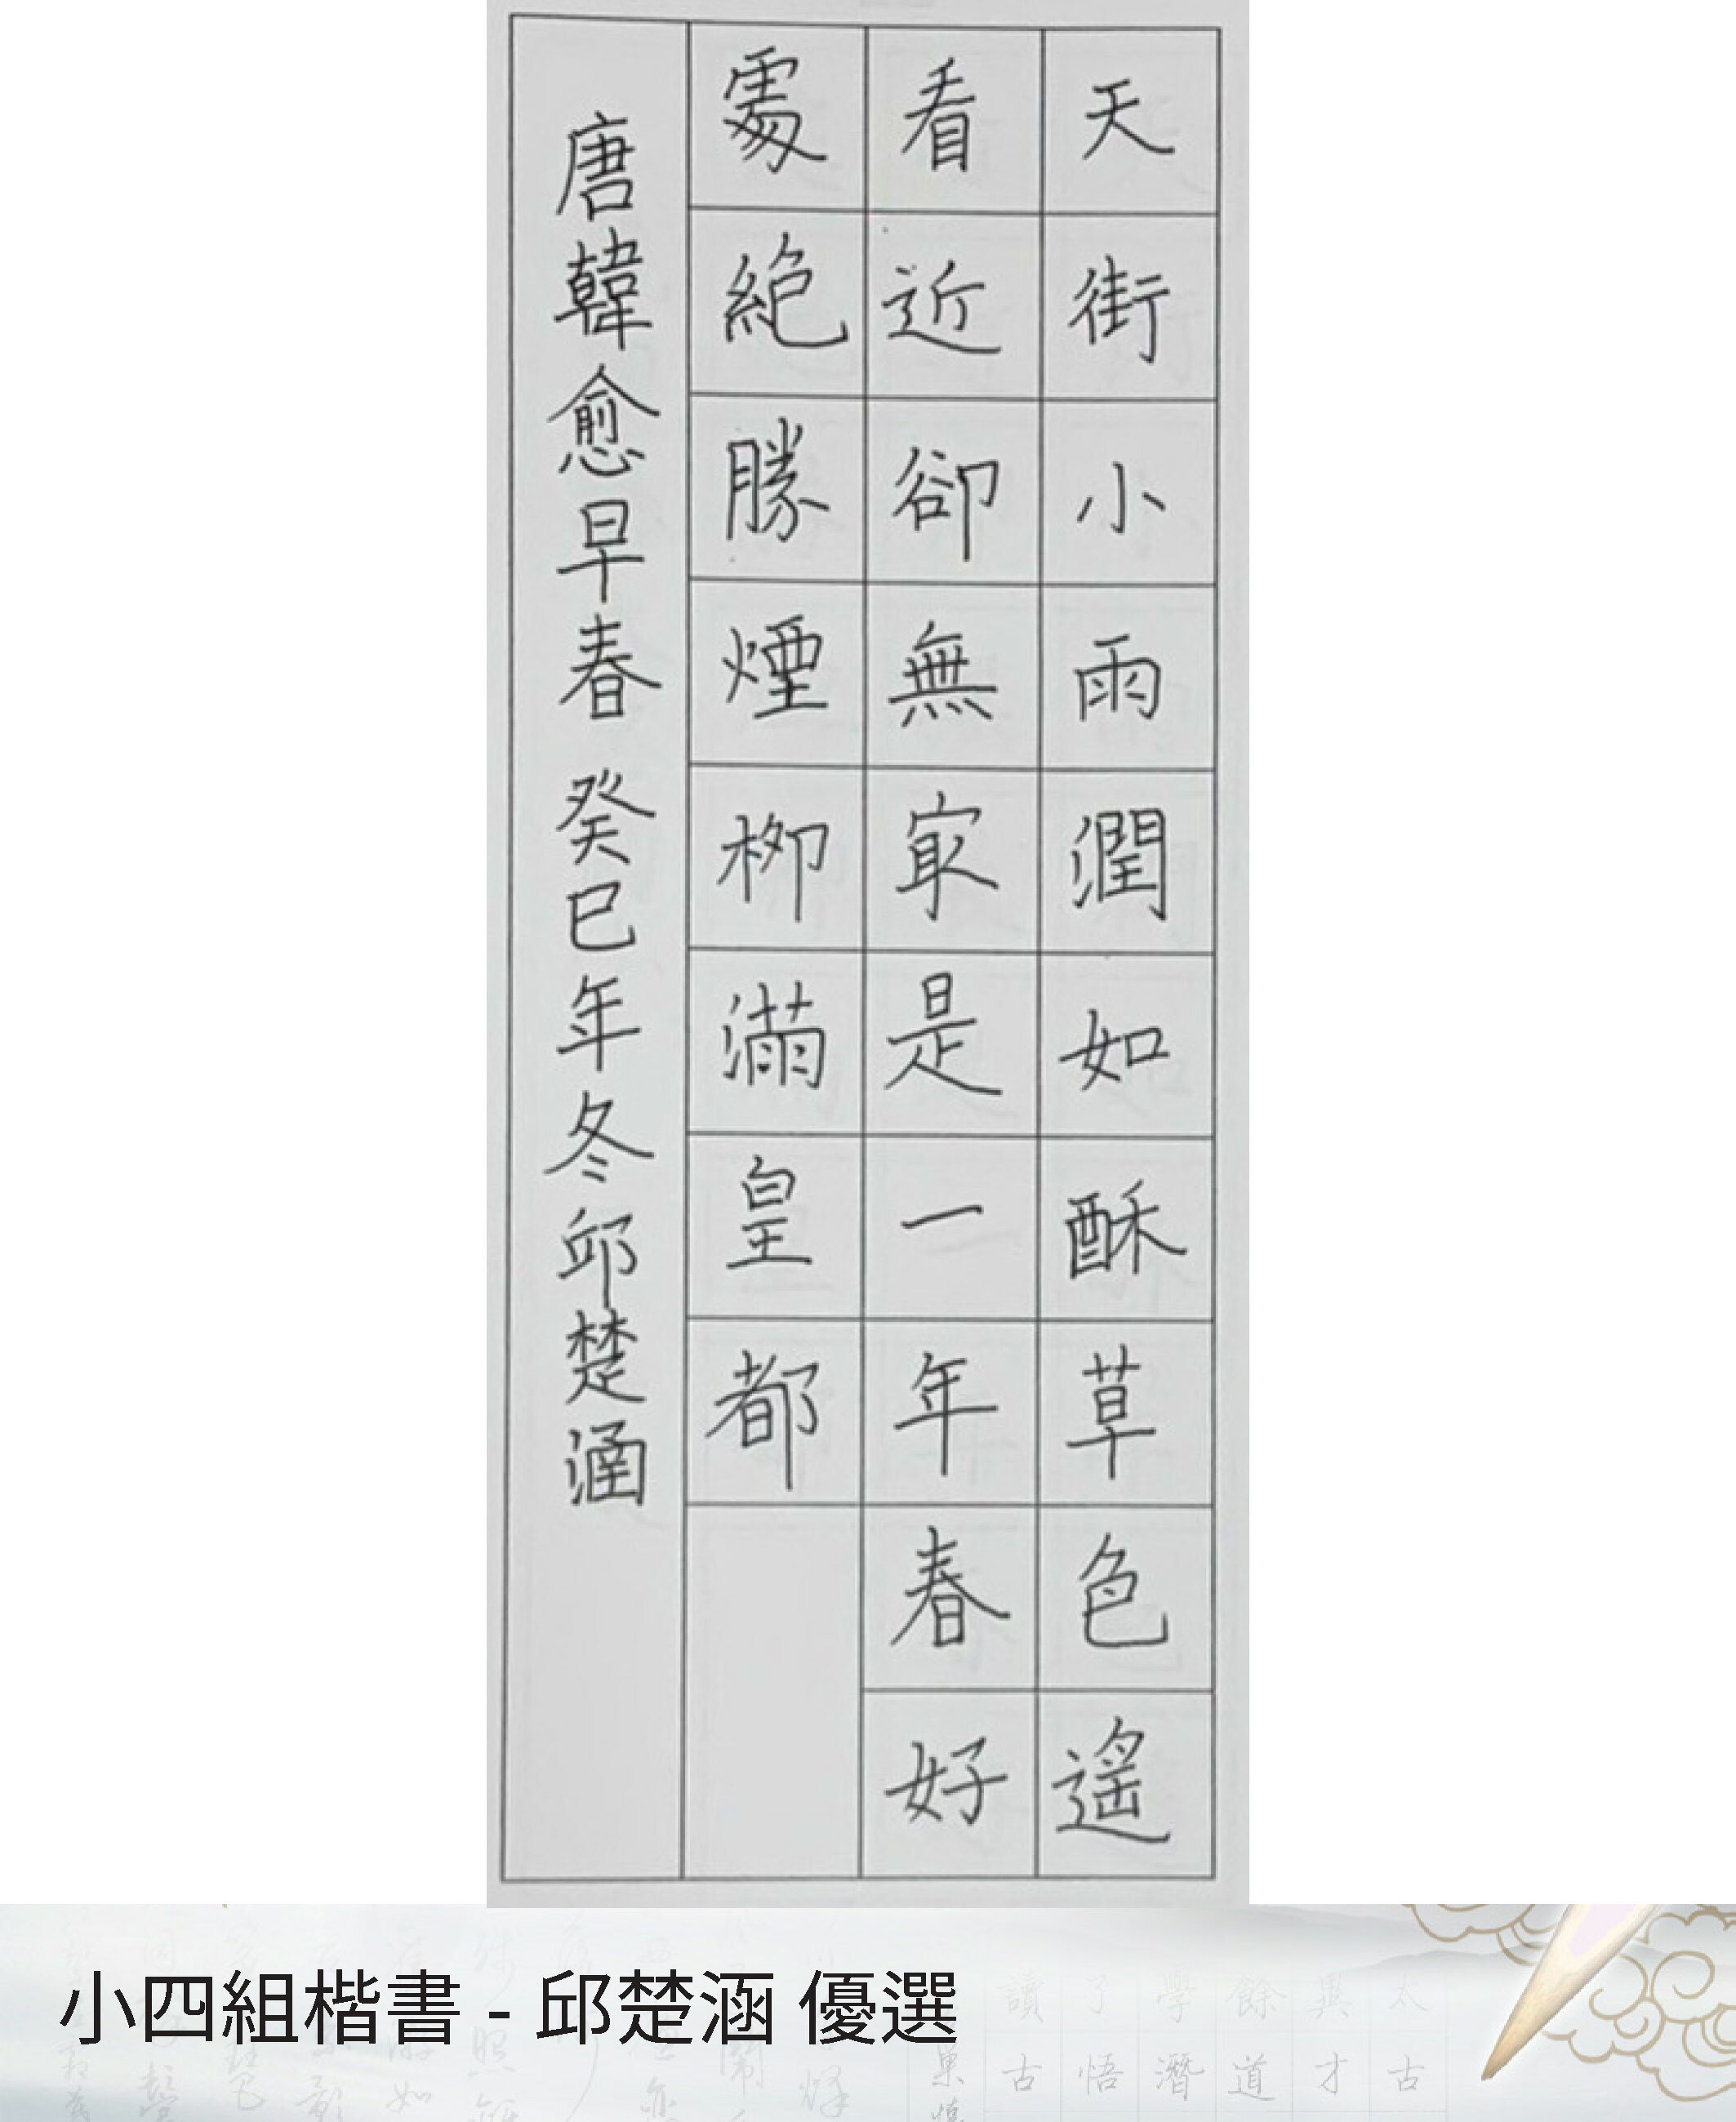 天街小雨潤如酥草色遙
看近卻無冣是一年春好
䖏絕勝煙柳滿皇都
唐韓愈早春 癸巳年冬邱楚涵
小四組楷書 - 邱楚涵 優選